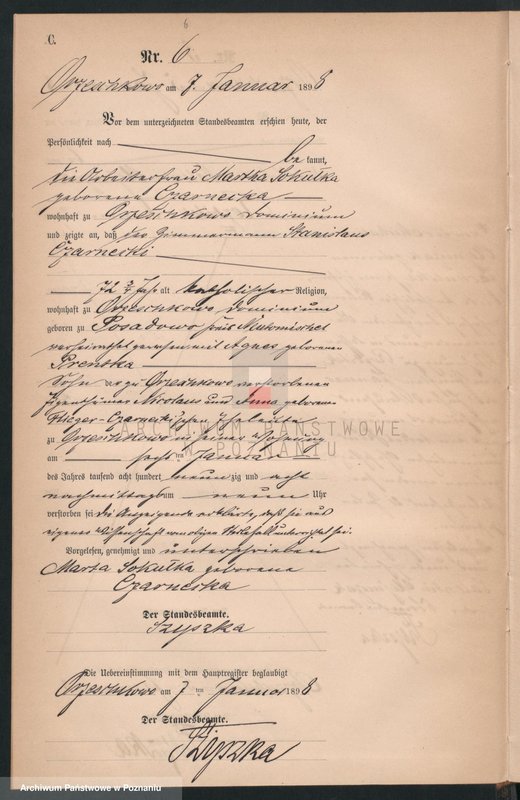 6
C.
Nr. 6
Orzeschkowo am 7. Januar 1898
Vor dem unterzeichneten Standesbeamten erschien heute, der
Persönlichkeit nach
be kannt,
die Arbeiterfrau Martha Sokulka
geborene Czarnecka
wohnhaft zu Orzeschkowo Dominium
und zeigte an, daß der Zimmermann Stanislaus
Czarnecki
72 3/4 Jahr alt katholischer Religion,
wohnhaft zu Orzeschkowo Dominium
geboren zu Posadowo Kreis Neutomischel
verheirathet gewesen mit Agnes geborenen
Sohn der zu Orzeschkowo verstorbenen
Eigenthümer Nicolaus und Anna geborene
Czarnecki'schen Eheleute
zu Orzeschkowo in seiner Wohnung
am sechsten Januar
des Jahres tausend acht hundert neun zig und acht
nachmittags um neun Uhr
verstorben sei. Die Anzeigende erklärte, daß sie aus
eigener Wissenschaft von obigen Sterbefall unterrichtet sei.
Vorgelesen, genehmigt und unterschrieben
Marta Sokulka geborene
Czarnecka
Der Standesbeamte.
Szyszka
Die Uebereinstimmung mit dem Hauptregister beglaubigt
Orzeschkowo am 7 ten Januar 1898
Der Standesbeamte.
Szyszka
ARCHIWUM PAŃSTWOWE
W POZNANIU
Archiwum Państwowe w Poznaniu